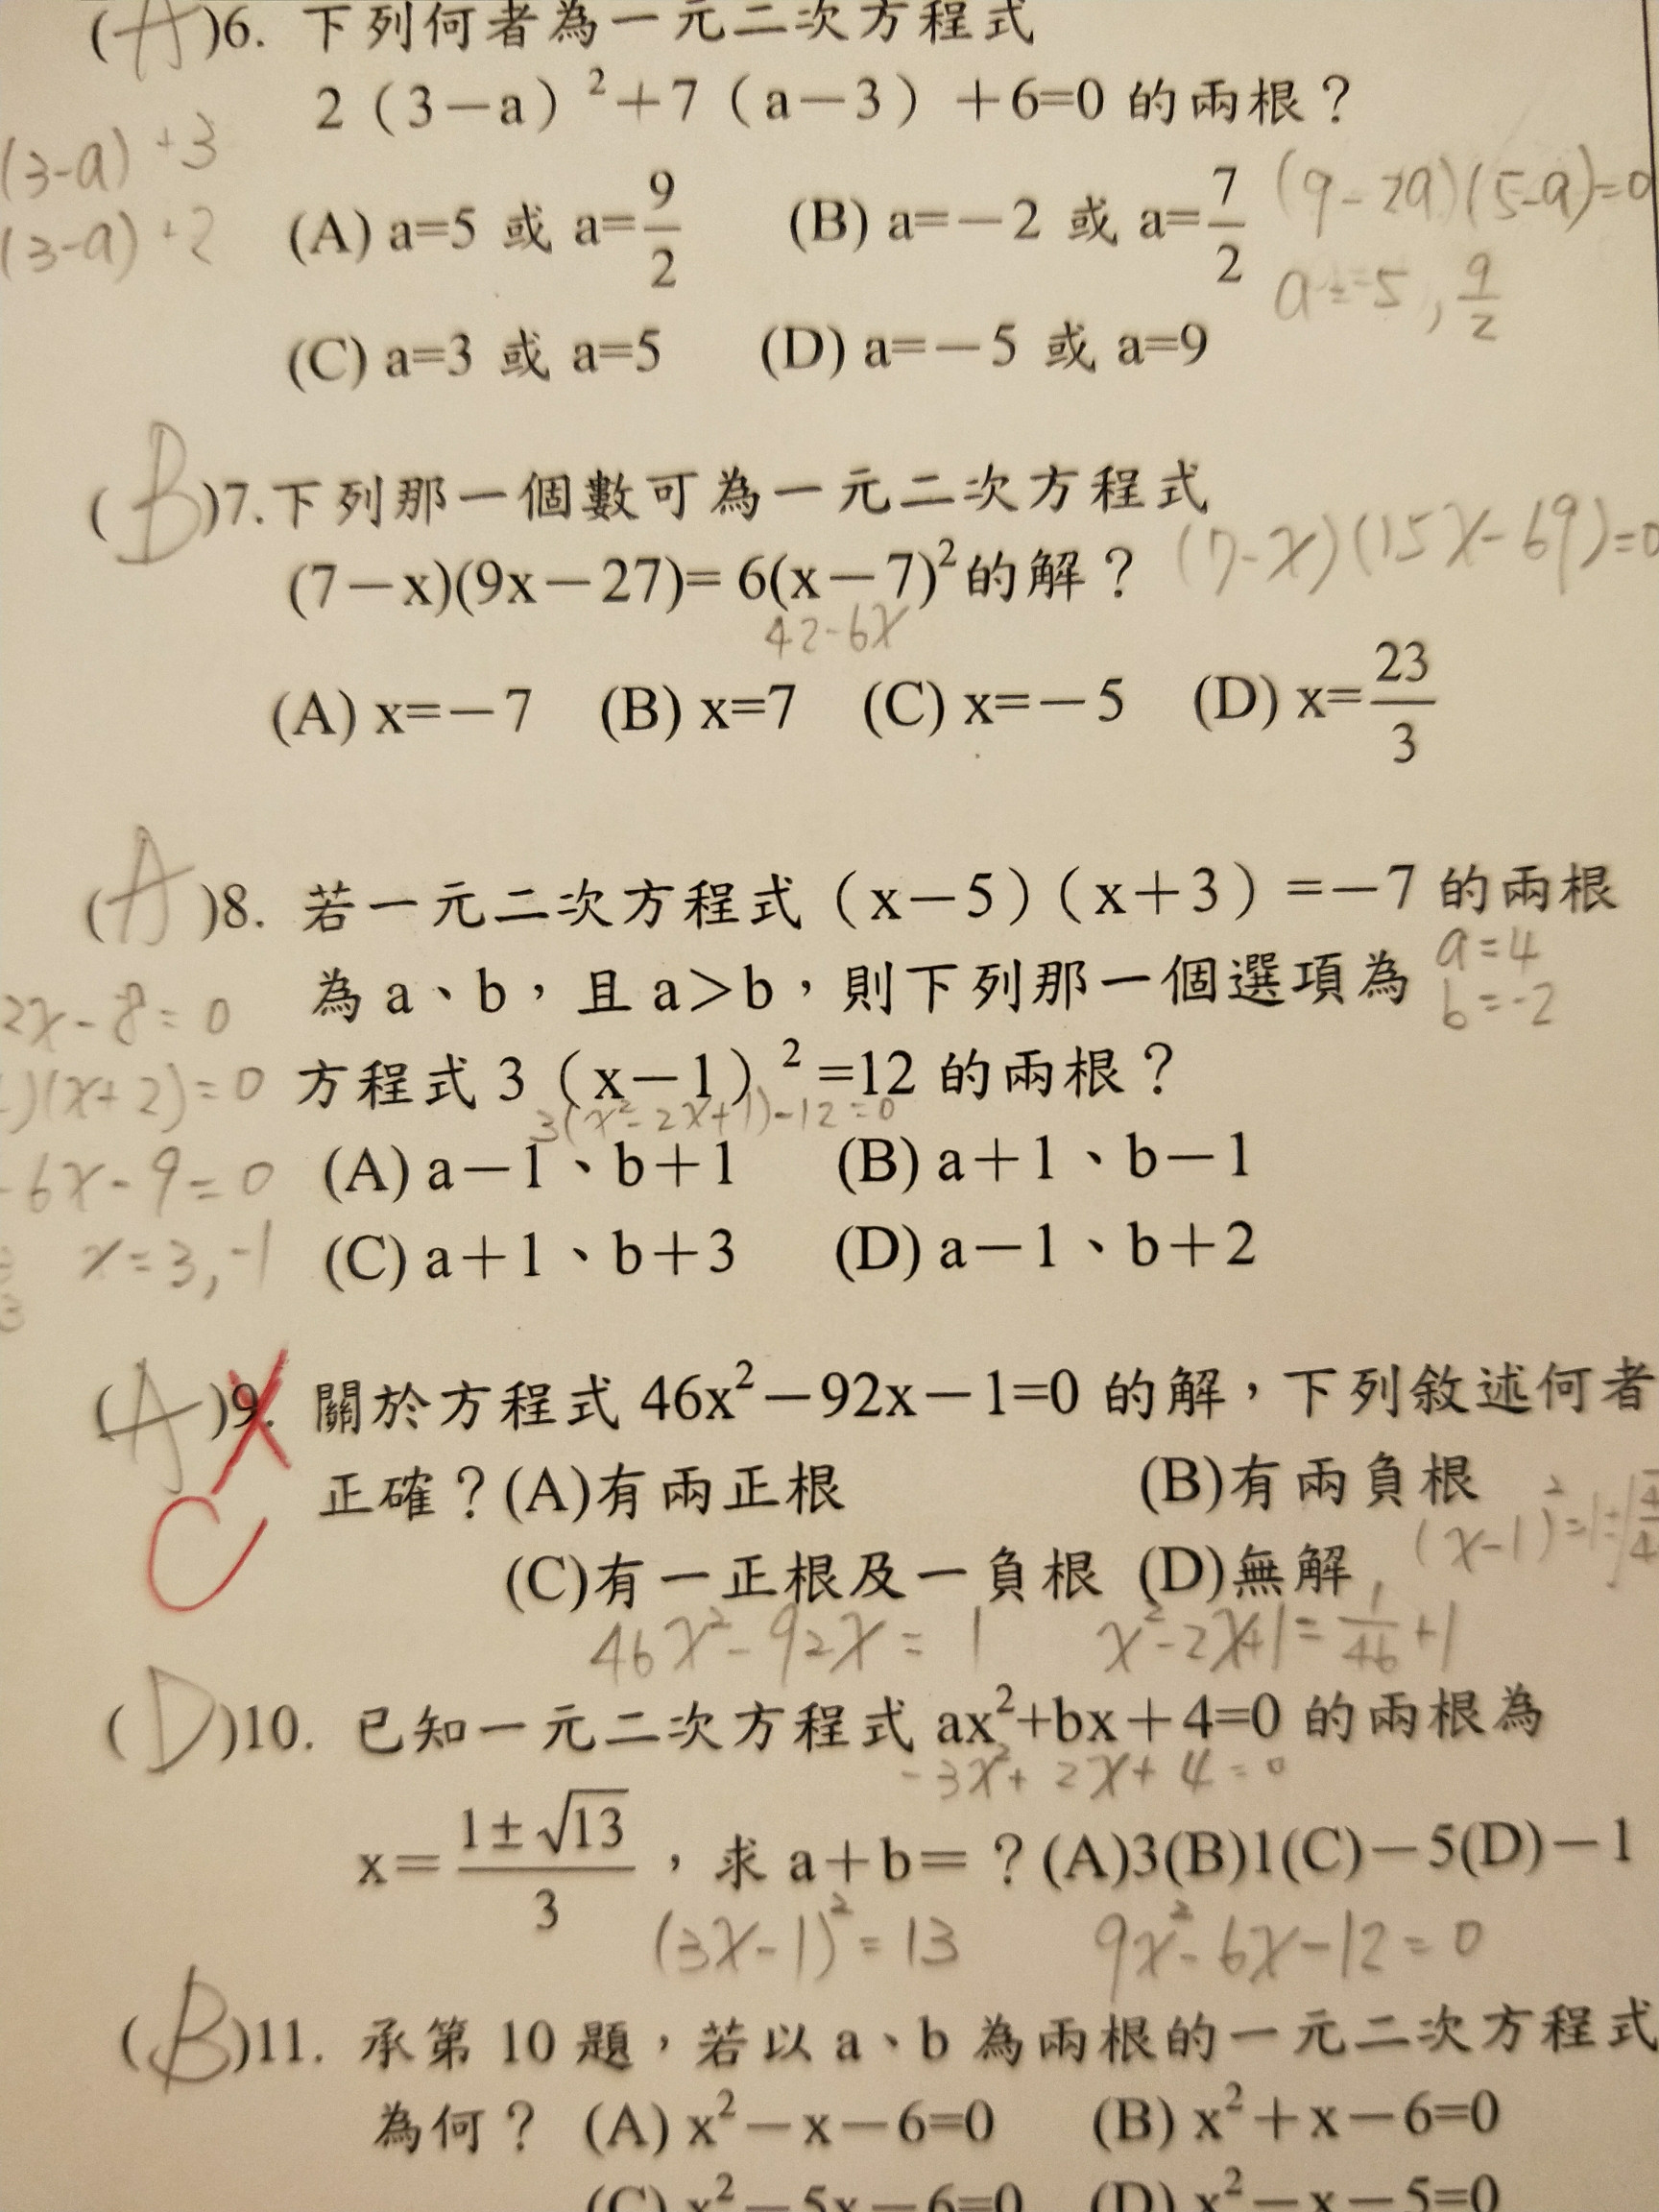 (A)6. 下列何者為一元二次方程式
2（3－a）²＋7（a－3）＋6=0 的兩根？
(3-a) +3
(3-a) +2
(A) a=5 或 a=9/2 (B) a=－2 或 a=7/2
(9-2a)(5-a)=0
a=5, 9/2
(C) a=3 或 a=5 (D) a=－5 或 a=9
(B)7.下列那一個數可為一元二次方程式
(7－x)(9x－27)= 6(x－7)²的解？
(7-x)(15x-69)=0
42-6x
(A) x=－7 (B) x=7 (C) x=－5 (D) x=23/3
(A)8. 若一元二次方程式（x－5）（x＋3）=－7 的兩根
為 a、b，且 a＞b，則下列那一個選項為
a=4
b=-2
2x-8=0
方程式 3（x－1）²=12 的兩根？
)(x+2)=0
3(x²-2x+1)-12=0
(A) a－1、b＋1 (B) a＋1、b－1
-6x-9=0
(C) a＋1、b＋3 (D) a－1、b＋2
x=3,-1
(A)9. 關於方程式 46x²－92x－1=0 的解，下列敘述何者
正確？(A)有兩正根 (B)有兩負根
C
(C)有一正根及一負根 (D)無解
46x²-92x=1 x²-2x+1=1/46+1
(D)10. 已知一元二次方程式 ax²+bx＋4=0 的兩根為
-3x²+2x+4=0
x＝(1±√13)/3，求 a＋b＝？(A)3(B)1(C)－5(D)－1
(3x-1)²=13 9x²-6x-12=0
(B)11. 承第 10 題，若以 a、b 為兩根的一元二次方程式
為何？ (A) x²－x－6=0 (B) x²＋x－6=0
(C) x²－5x－6=0 (D) x²－x－5=0